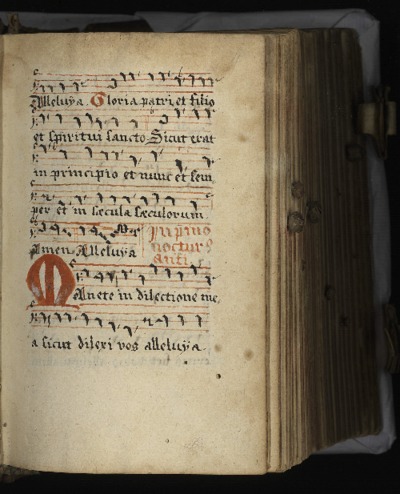 Alleluya. Gloria patri et filio
et spiritui sancto. Sicut erat
in principio et nunc et sem
per et in sæcula sæculorum
Amen Alleluya
In primo
noctur9
anti:
Manete in dilectione me
a sicut dilexi vos alleluya